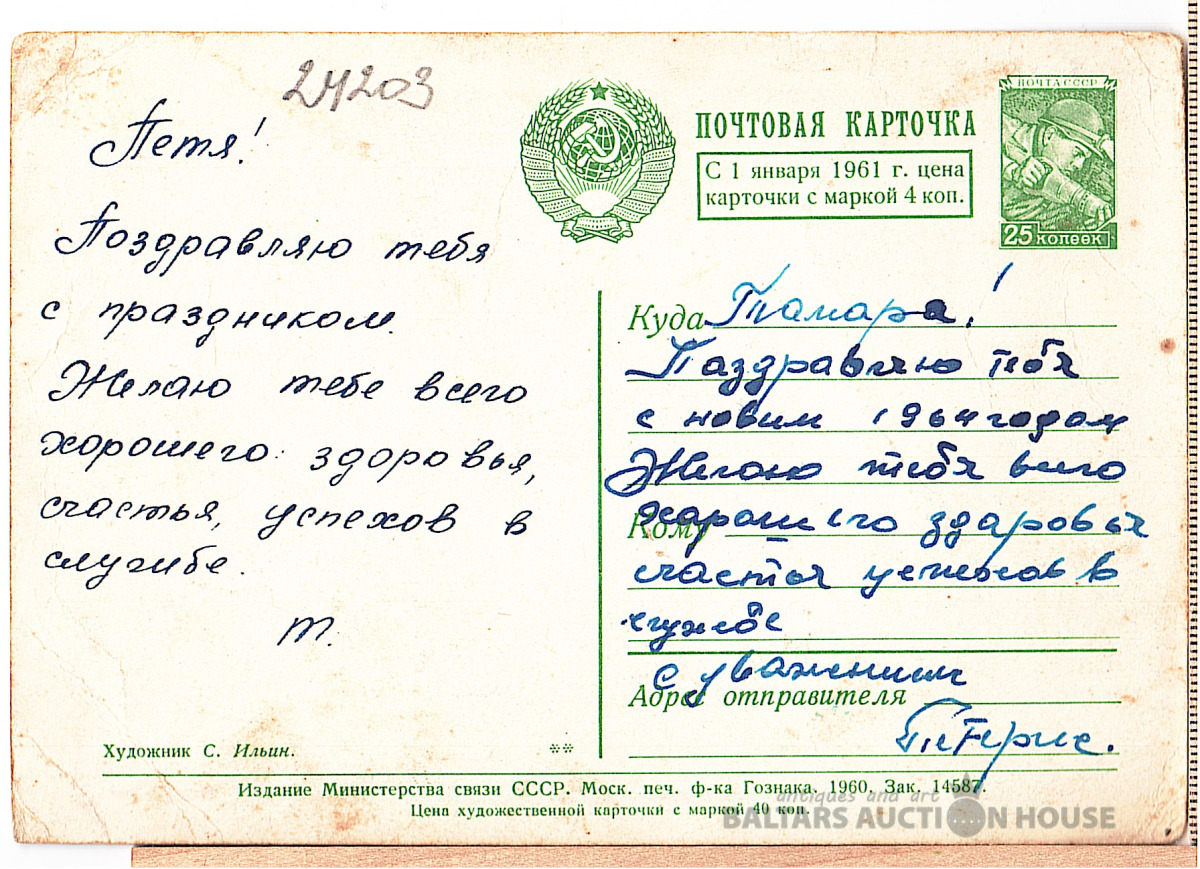 24203
Петя!
Поздравляю тебя
с праздником.
Желаю тебе всего
хорошего: здоровья,
счастья, успехов в
службе.
Т.
ПОЧТА СССР
25 КОПЕЕК
ПОЧТОВАЯ КАРТОЧКА
С 1 января 1961 г. цена
карточки с маркой 4 коп.
Куда Тамара!
Паздравляю тебя
с новим 1964 годом
Желаю тебя всего
Кому харошего здаровья
счастья успехов в
службе
с уваженним
Адрес отправителя
Петерис.
Художник С. Ильин.
**
Издание Министерства связи СССР. Моск. печ. ф-ка Гознака. 1960. Зак. 14587.
Цена художественной карточки с маркой 40 коп.
antiques and art
BALTARS AUCTION HOUSE